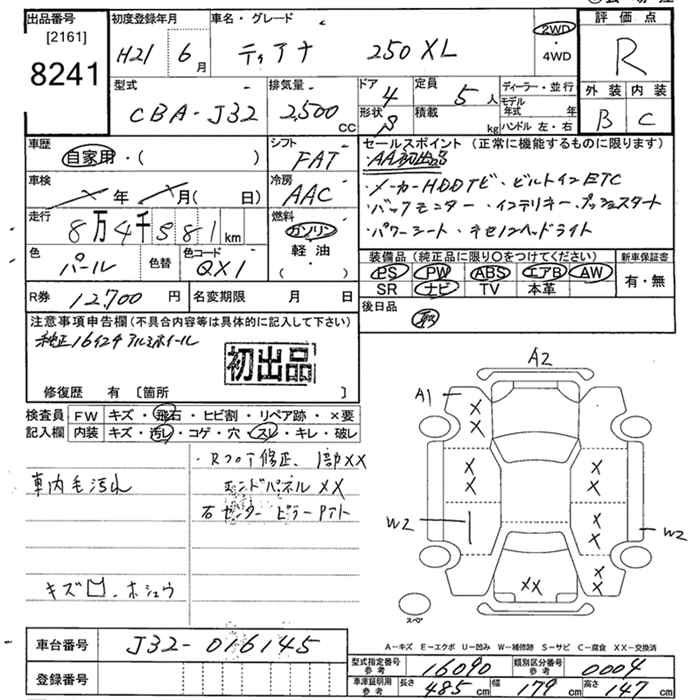 出品番号
[2161]
8241
初度登録年月
H21 6月
車名・グレード
ティアナ 250XL
2WD
・
4WD
評価点
R
外装 内装
B C
型式
CBA-J32
排気量
2,500 CC
ドア 4
形状 S
定員 5 人
積載 kg
ディーラー・並行
モデル年式 年
ハンドル 左・右
車歴
自家用・( )
シフト
FAT
車検
年 月( 日)
冷房
AAC
走行
8万4千581km
燃料
ガソリン
・
軽油
・
色
パール
色替
色コード
QX1
R券 12,700円
名変期限 月 日
セールスポイント (正常に機能するものに限ります)
AA初出品
・メーカーHDDナビ・ビルトインETC
・バックモニター・インテリキー・プッシュスタート
・パワーシート・キセノンヘッドライト
装備品 (純正品に限り〇をつけてください)
PS PW ABS エアB AW
SR ナビ TV 本革
新車保証書
有・無
後日品
取
注意事項申告欄(不具合内容等は具体的に記入して下さい)
純正16インチアルミホイール
初出品
修復歴 有 [箇所 ]
検査員記入欄
FW キズ・飛石・ヒビ割・リペア跡・×要
内装 キズ・汚レ・コゲ・穴・スレ・キレ・破レ
車内毛汚れ
キズ凹、ホシュウ
・Rフロア修正、1部XX
エンドパネルXX
右センターピラーアト
A2
A1
XX
XX
XX
XX
XX
XX
W2
W2
スペア
A-キズ E-エクボ U-凹み W-補修跡 S-サビ C-腐食 XX-交換済
車台番号 J32-016145
登録番号
型式指定番号 参考 16090
類別区分番号 参考 0004
車庫証明用 参考 長さ 485cm 幅 179cm 高さ 147cm